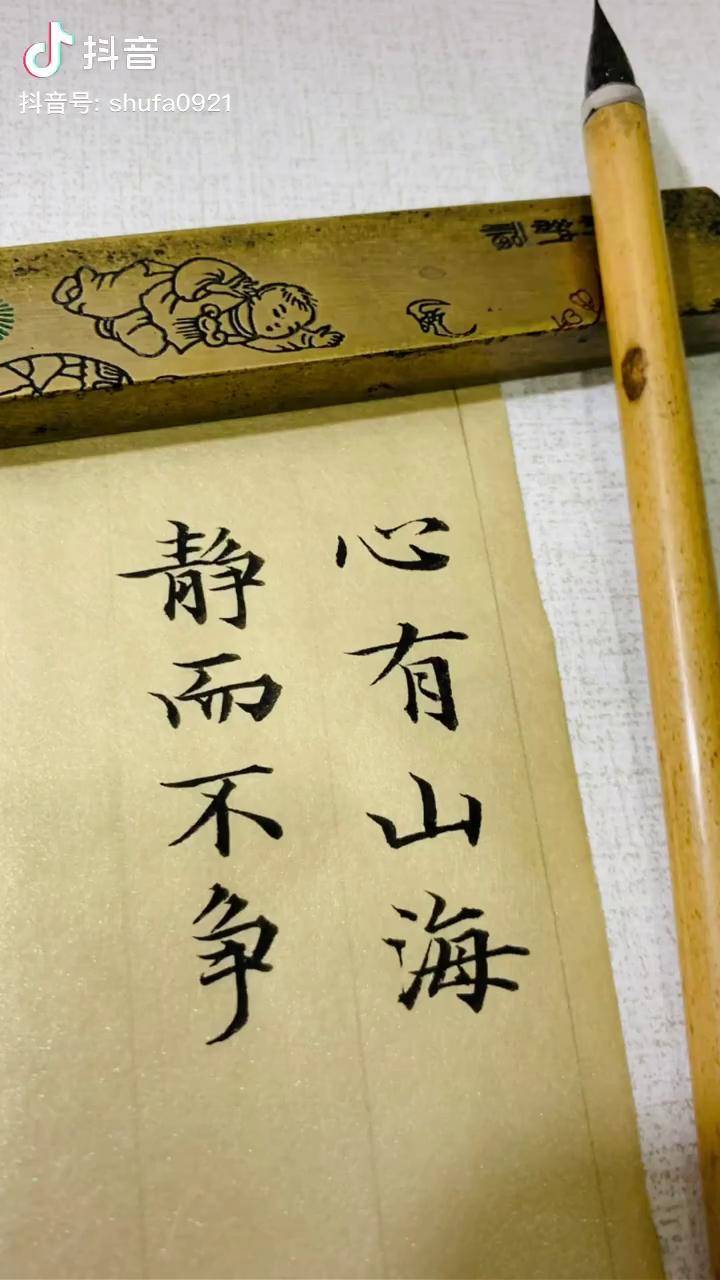 抖音
抖音号: shufa0921
心有山海
静而不争